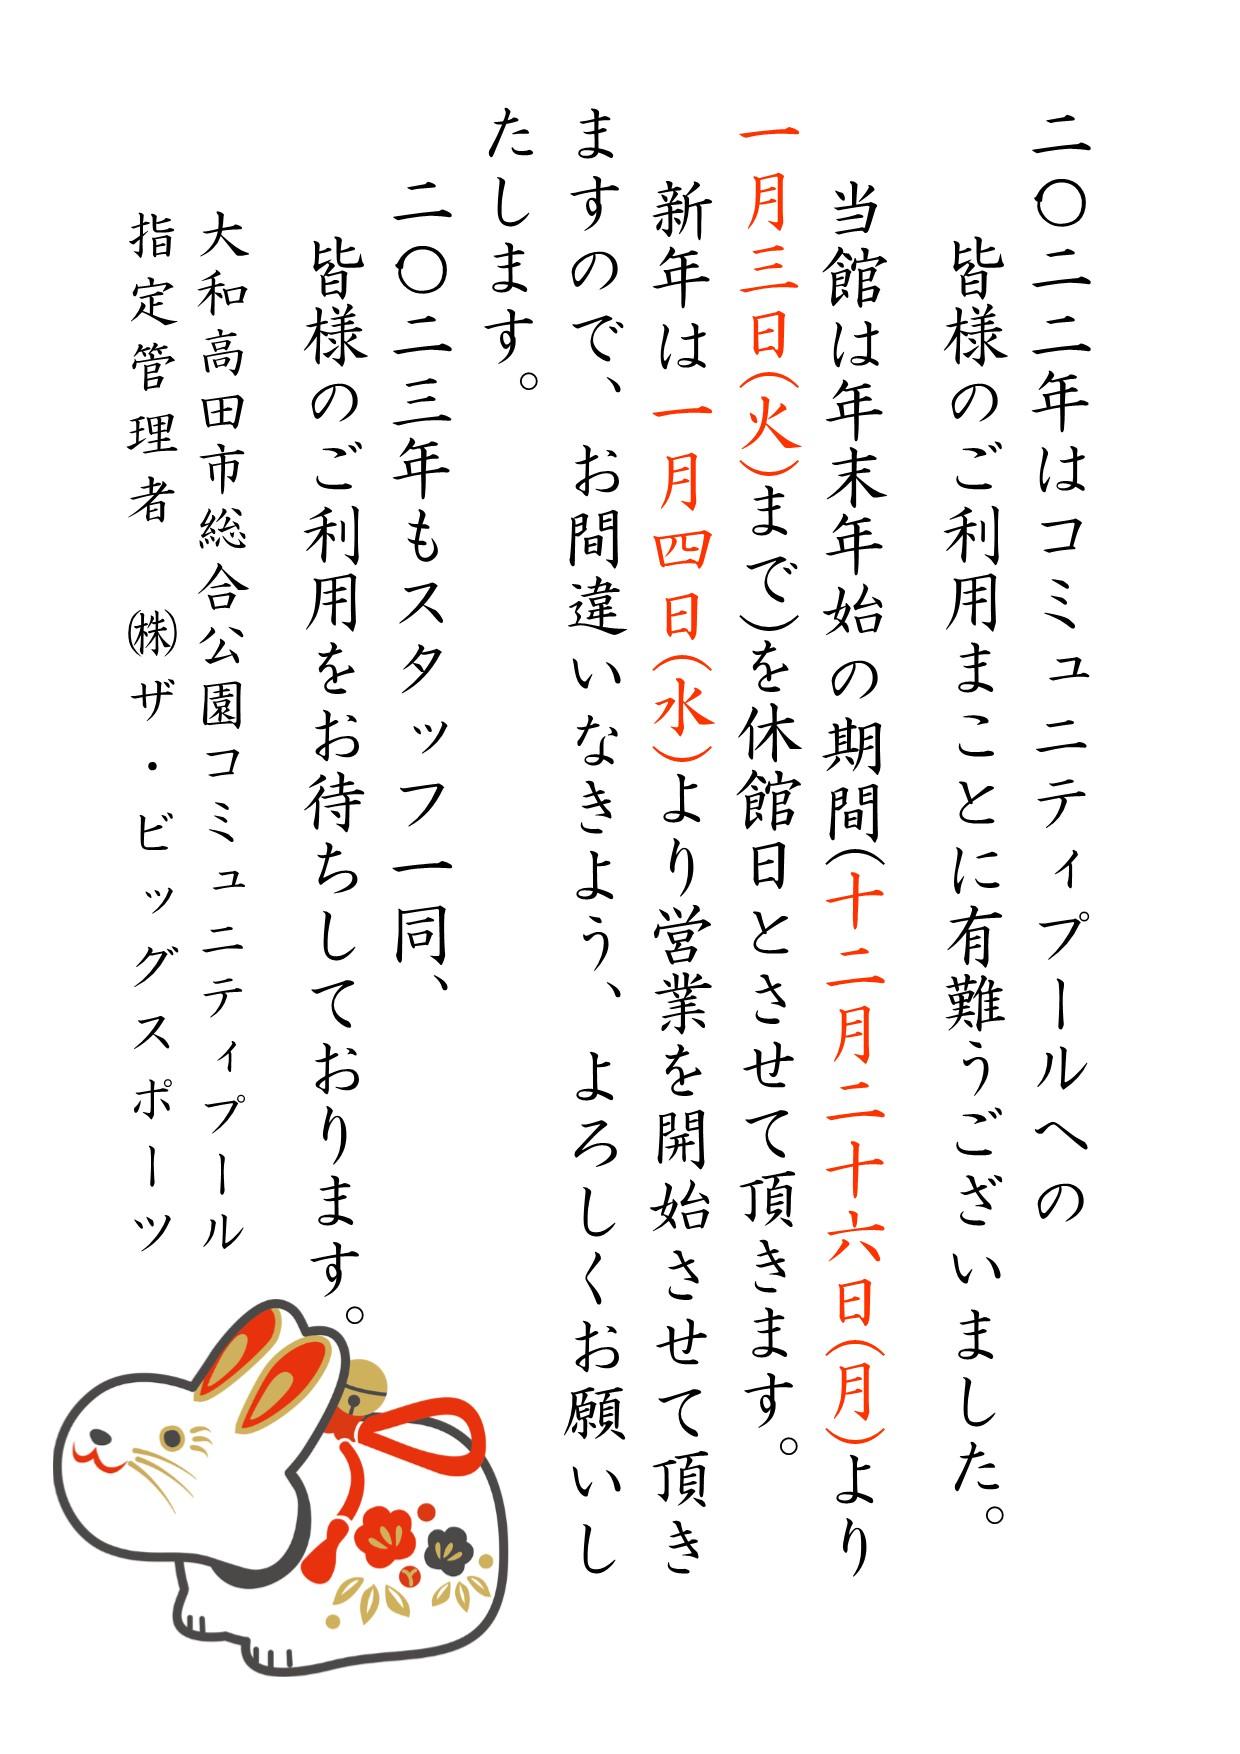 二〇二二年はコミュニティプールへの
皆様のご利用まことに有難うございました。
当館は年末年始の期間(十二月二十六日(月)より
一月三日(火)まで)を休館日とさせて頂きます。
新年は一月四日(水)より営業を開始させて頂き
ますので、お間違いなきよう、よろしくお願いし
たします。
二〇二三年もスタッフ一同、
皆様のご利用をお待ちしております。
大和高田市総合公園コミュニティプール
指定管理者　㈱ザ・ビッグスポーツ